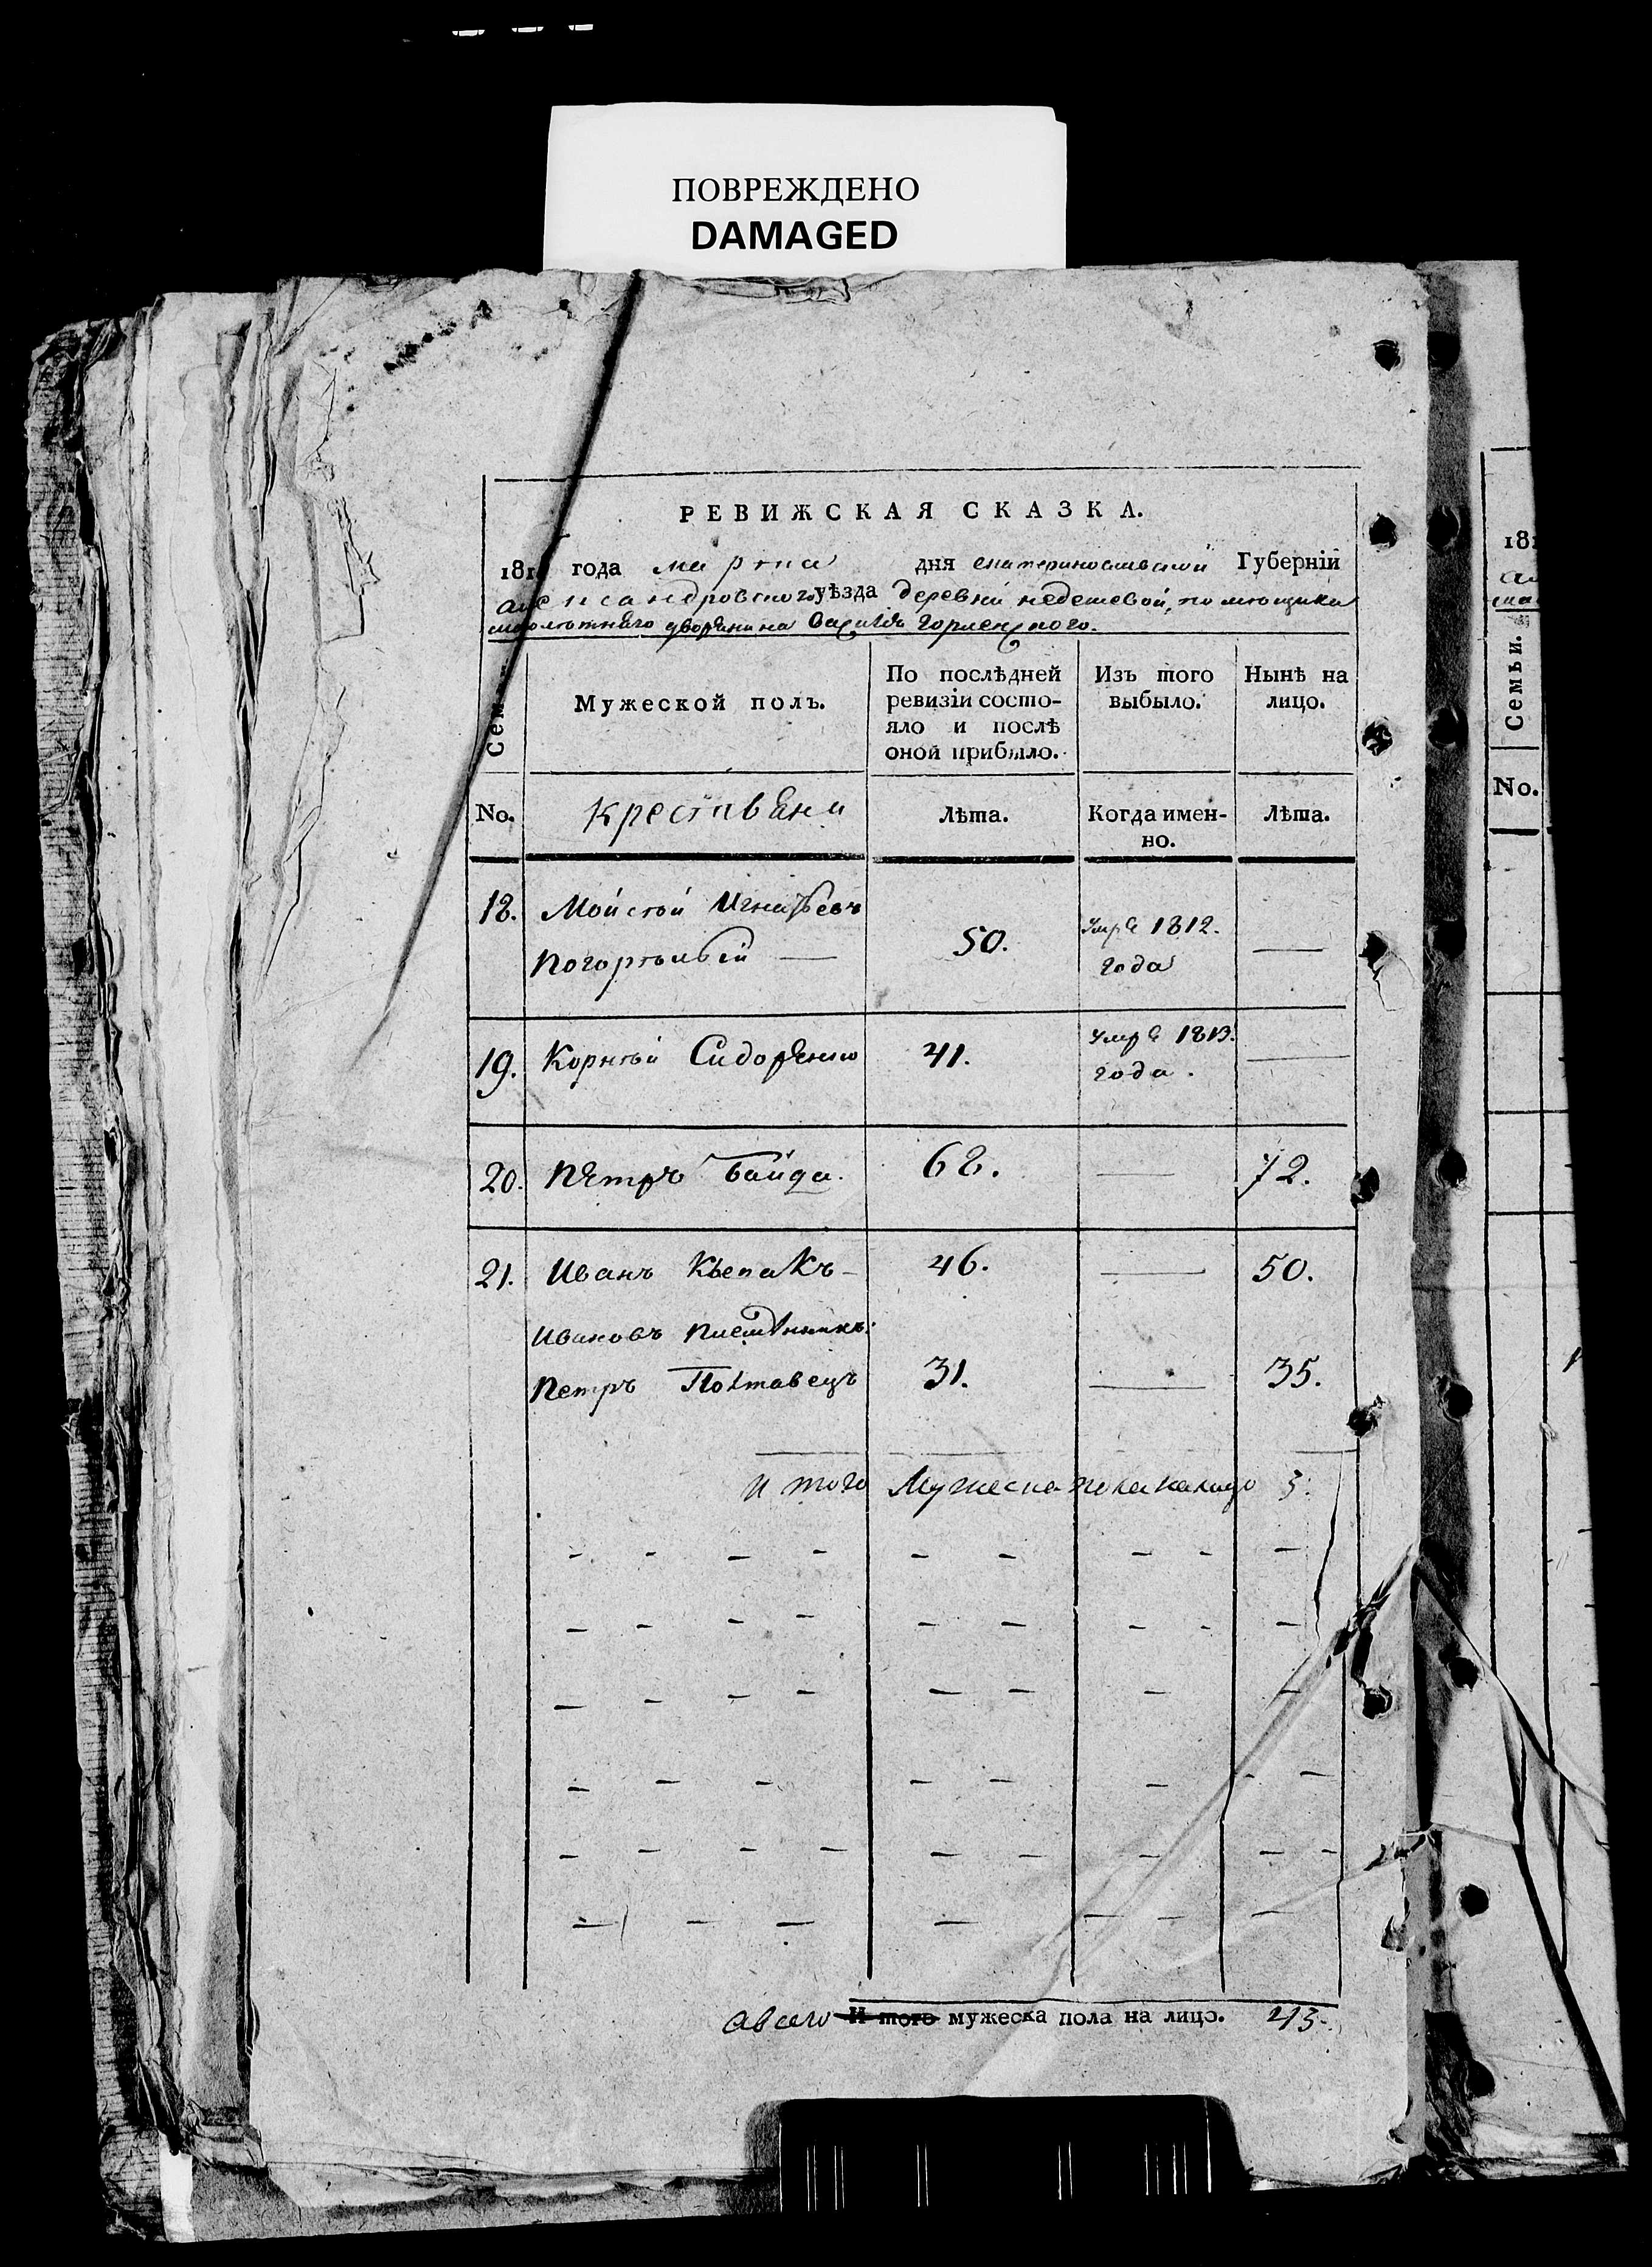 ПОВРЕЖДЕНО
DAMAGED
РЕВИЖСКАЯ СКАЗКА.
181 года марта дня екатеринославской Губерніи
александровского уѣзда деревни недешевой, помѣщика
малолѣтняго дворянина Василія Горленского.
Семьи.
Мужеской полъ.
По послѣдней ревизіи состо-
яло и послѣ
оной прибыло.
Изъ того
выбыло.
Нынѣ на
лицо.
No.
крестьяни
Лѣта.
Когда имен-
но.
Лѣта.
18. Мойсей Игнатьевъ
Погорѣлый — 50. умре 1812. года —
19. Корнѣй Сидоренко 41. умре 1813. года. —
20. Петръ Байда. 68. — 72.
21. Иванъ Кѣпакъ 46. — 50.
Ивановъ племѣнникъ:
Петръ Полтавецъ 31. — 35.
Итого Мужеска пола налицо 3.
авсего И того мужеска пола на лицо. 43.
181
Семьи.
No.